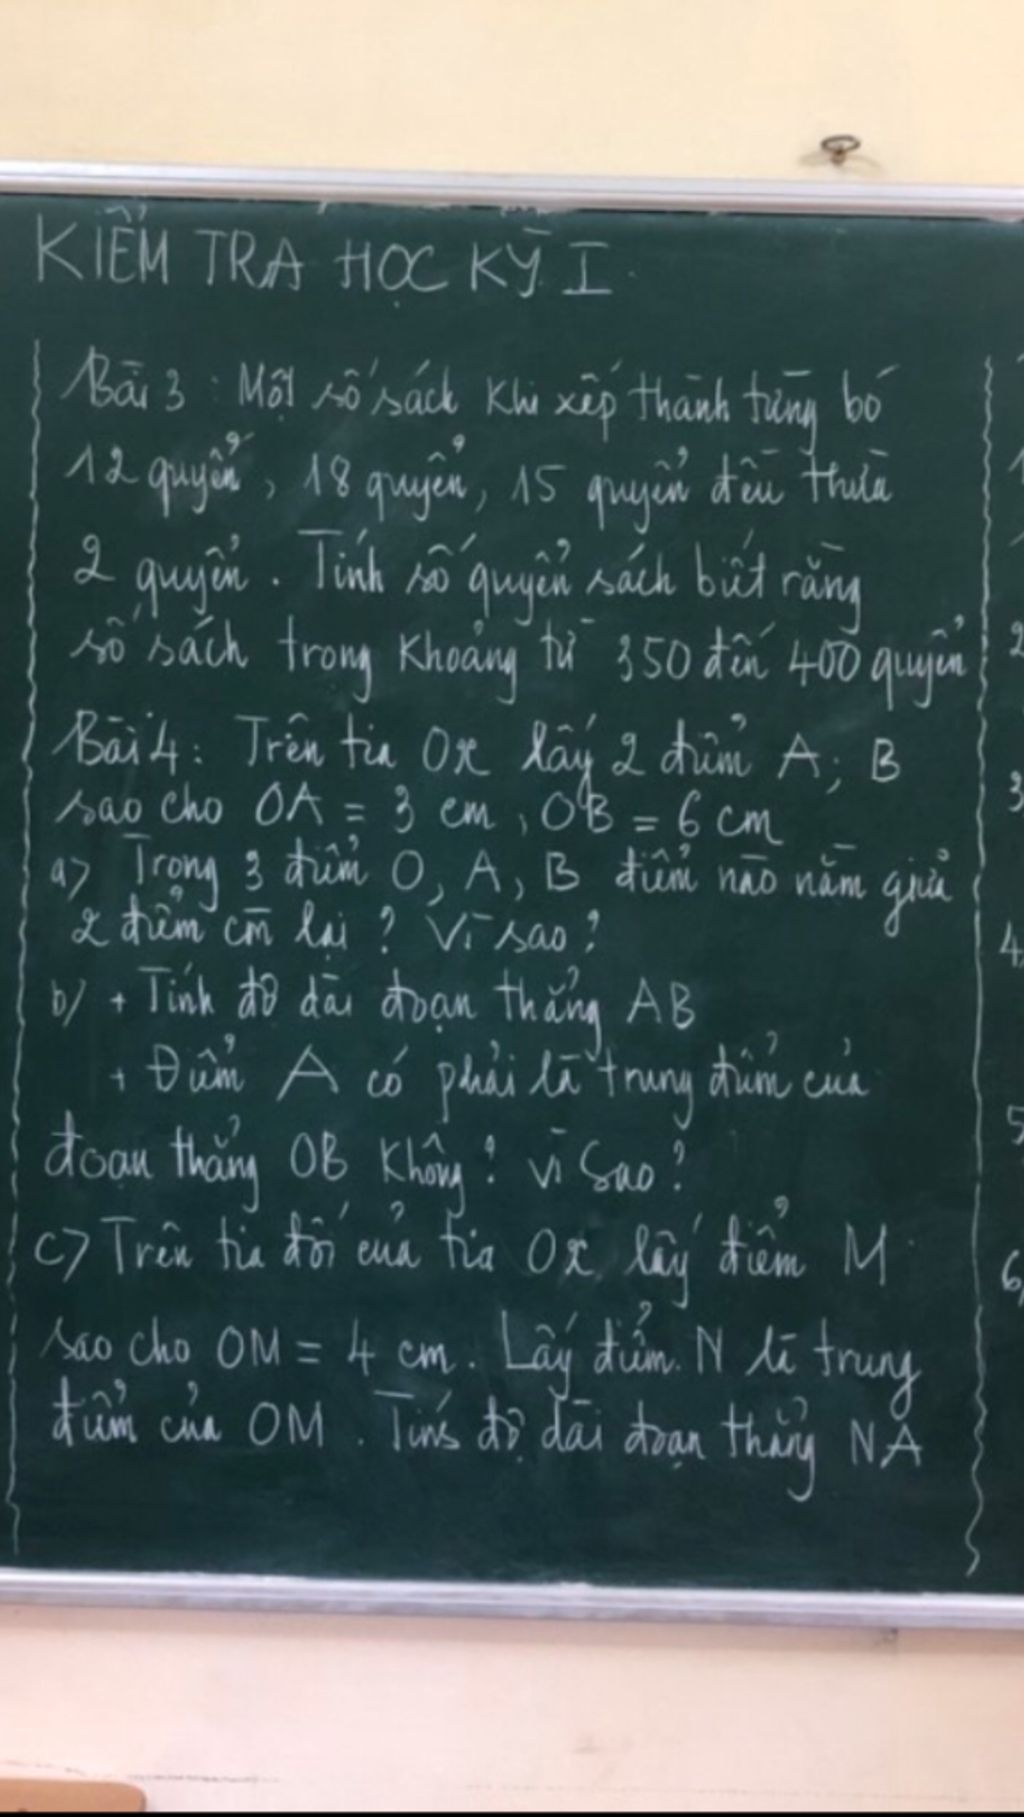 KIỂM TRA HỌC KỲ I
Bài 3 : Một số sách khi xếp thành từng bó
12 quyển, 18 quyển, 15 quyển đều thừa
2 quyển. Tính số quyển sách biết rằng
số sách trong khoảng từ 350 đến 400 quyển
Bài 4 : Trên tia Ox lấy 2 điểm A; B
sao cho OA = 3 cm, OB = 6 cm
a) Trong 3 điểm O, A, B điểm nào nằm giữa
2 điểm còn lại ? Vì sao ?
b) + Tính độ dài đoạn thẳng AB
+ Điểm A có phải là trung điểm của
đoạn thẳng OB không ? Vì Sao ?
c) Trên tia đối của tia Ox lấy điểm M
sao cho OM = 4 cm. Lấy điểm N là trung
điểm của OM. Tính độ dài đoạn thẳng NA
1
2
3
4,
5
6,